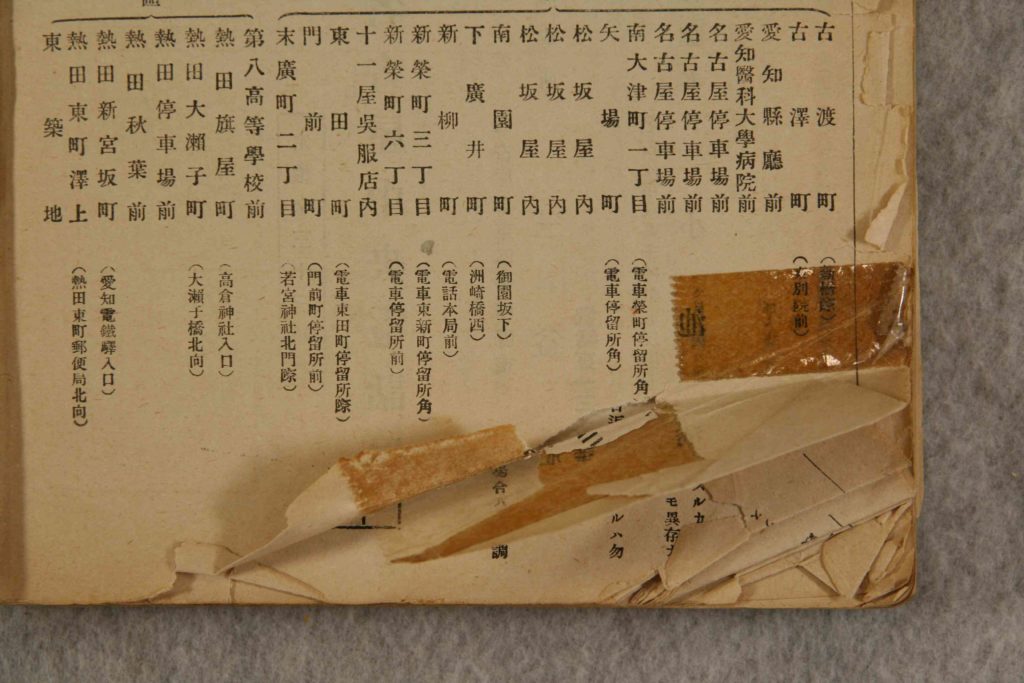 古渡町
古澤町 (大別院前)
愛知縣廳前
愛知醫科大學病院前
名古屋停車場前
名古屋停車場前
名古屋停車場前
南大津町一丁目 (電車榮町停留所角)
矢場町 (電車停留所角)
松坂屋內
松坂屋內
松坂屋內
南園町 (御園坂下)
下廣井町 (洲崎橋西)
新柳町 (電話本局前)
新榮町三丁目 (電車東新町停留所角)
新榮町六丁目 (電車停留所前)
十一屋吳服店內
東田町 (電車東田町停留所際)
門前町 (門前町停留所前)
末廣町二丁目 (若宮神社北門際)
第八高等學校前
熱田旗屋町 (高倉神社入口)
熱田大瀬子町 (大瀬子橋北向)
熱田停車場前
熱田秋葉前
熱田新宮坂町 (愛知電鐵驛入口)
熱田東町澤上 (熱田東町郵便局北向)
東築地
ルカ
モ異存ナ
ルハ勿
調